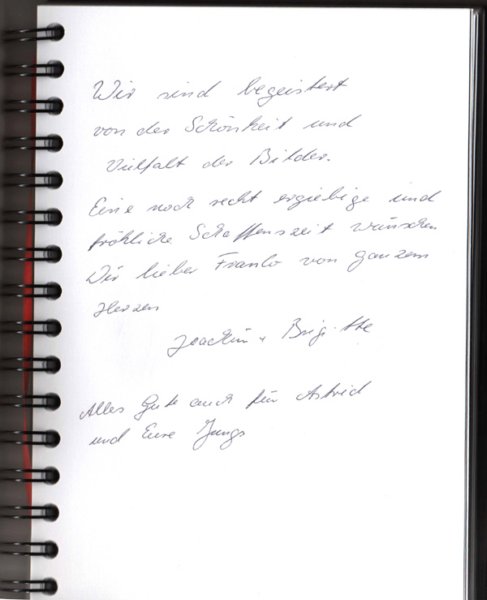 Wir sind begeistert
von der Schönheit und
Vielfalt der Bilder.
Eine noch recht ergiebige und
fröhliche Schaffenszeit wünschen
Wir lieber Franko von ganzem
Herzen
Joachim + Brigitte
Alles Gute auch für Astrid
und Eure Jungs